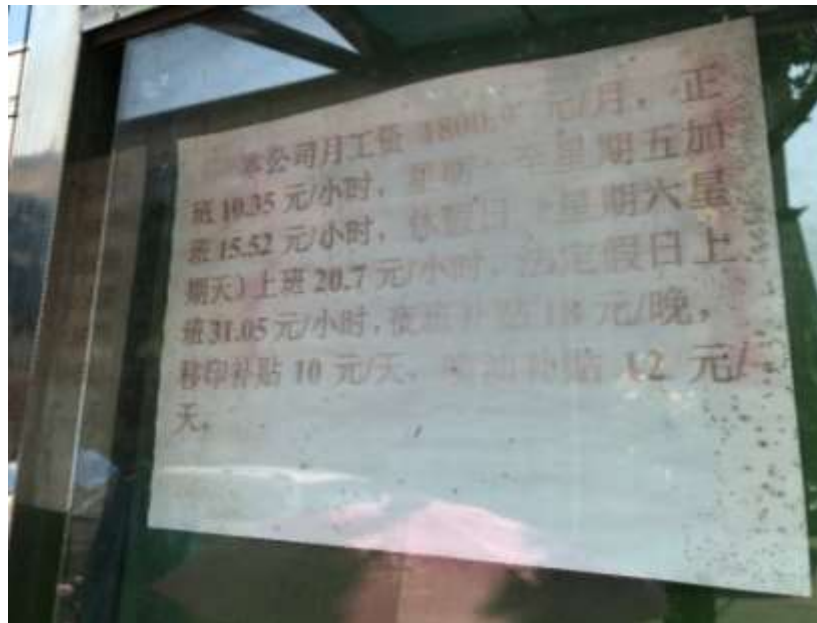 本公司月工资 1800.0 元/月，正
班 10.35 元/小时，星期一至星期五加
班 15.52 元/小时，休假日（星期六星
期天）上班 20.7 元/小时，法定假日上
班31.05 元/小时，夜班补贴 元/晚，
移印补贴 10 元/天，喷油补贴 12 元/
天。